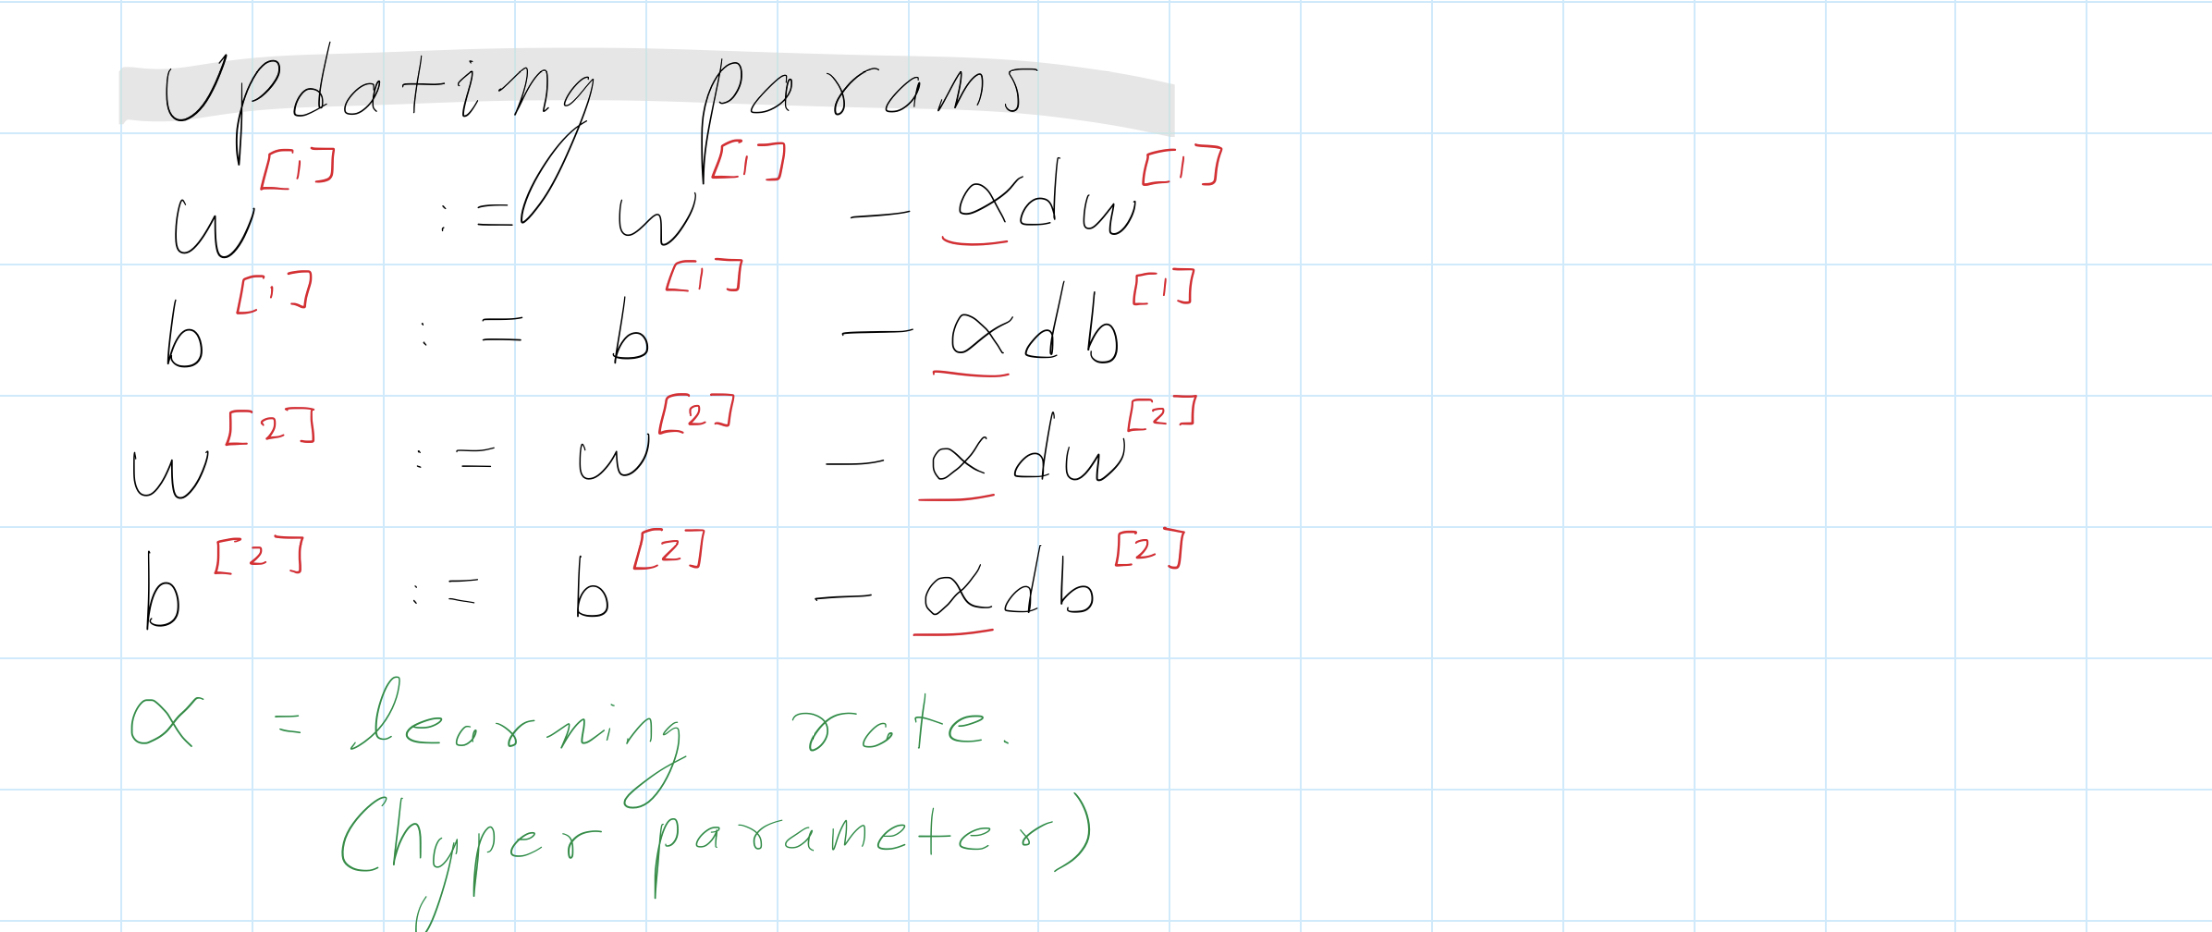 Updating params
w^[1] := w^[1] - αdw^[1]
b^[1] := b^[1] - αdb^[1]
w^[2] := w^[2] - αdw^[2]
b^[2] := b^[2] - αdb^[2]
α = learning rate.
(hyper parameter)